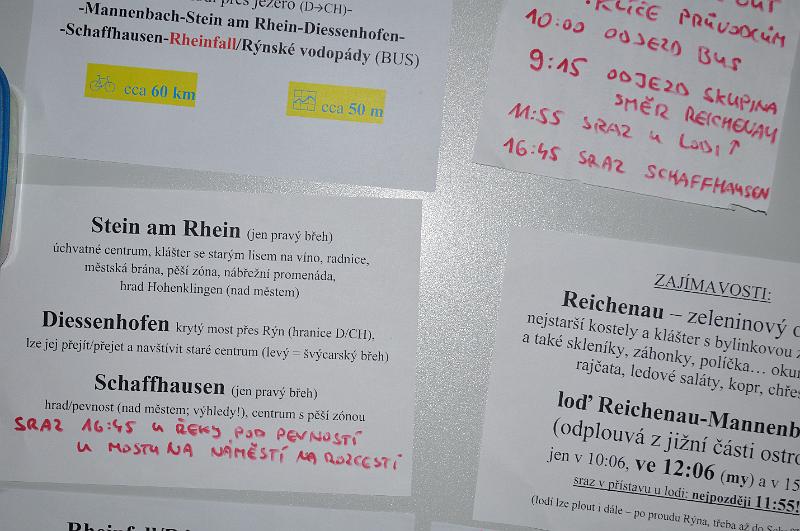 přes jezero (D→CH)-
-Mannenbach-Stein am Rhein-Diessenhofen-
-Schaffhausen-Rheinfall/Rýnské vodopády (BUS)
cca 60 km
cca 50 m
KLÍČE PRŮVODCŮM
10:00 ODJEZD BUS
9:15 ODJEZD SKUPINA
SMĚR REICHENAU
11:55 SRAZ U LODI ↑
16:45 SRAZ SCHAFFHAUSEN
Stein am Rhein (jen pravý břeh)
úchvatné centrum, klášter se starým lisem na víno, radnice,
městská brána, pěší zóna, nábřežní promenáda,
hrad Hohenklingen (nad městem)
Diessenhofen krytý most přes Rýn (hranice D/CH),
lze jej přejít/přejet a navštívit staré centrum (levý = švýcarský břeh)
Schaffhausen (jen pravý břeh)
hrad/pevnost (nad městem; výhledy!), centrum s pěší zónou
SRAZ 16:45 U ŘEKY POD PEVNOSTÍ
U MOSTU NA NÁMĚSTÍ NA ROZCESTÍ
ZAJÍMAVOSTI:
Reichenau – zeleninový
nejstarší kostely a klášter s bylinkovou
a také skleníky, záhonky, políčka… 
rajčata, ledové saláty, kopr,
loď Reichenau-Mannenb
(odplouvá z jižní části ostro
jen v 10:06, ve 12:06 (my) a v 15
sraz v přístavu u lodi: nejpozději 11:55!
(lodí lze plout i dále – po proudu Rýna, třeba až do